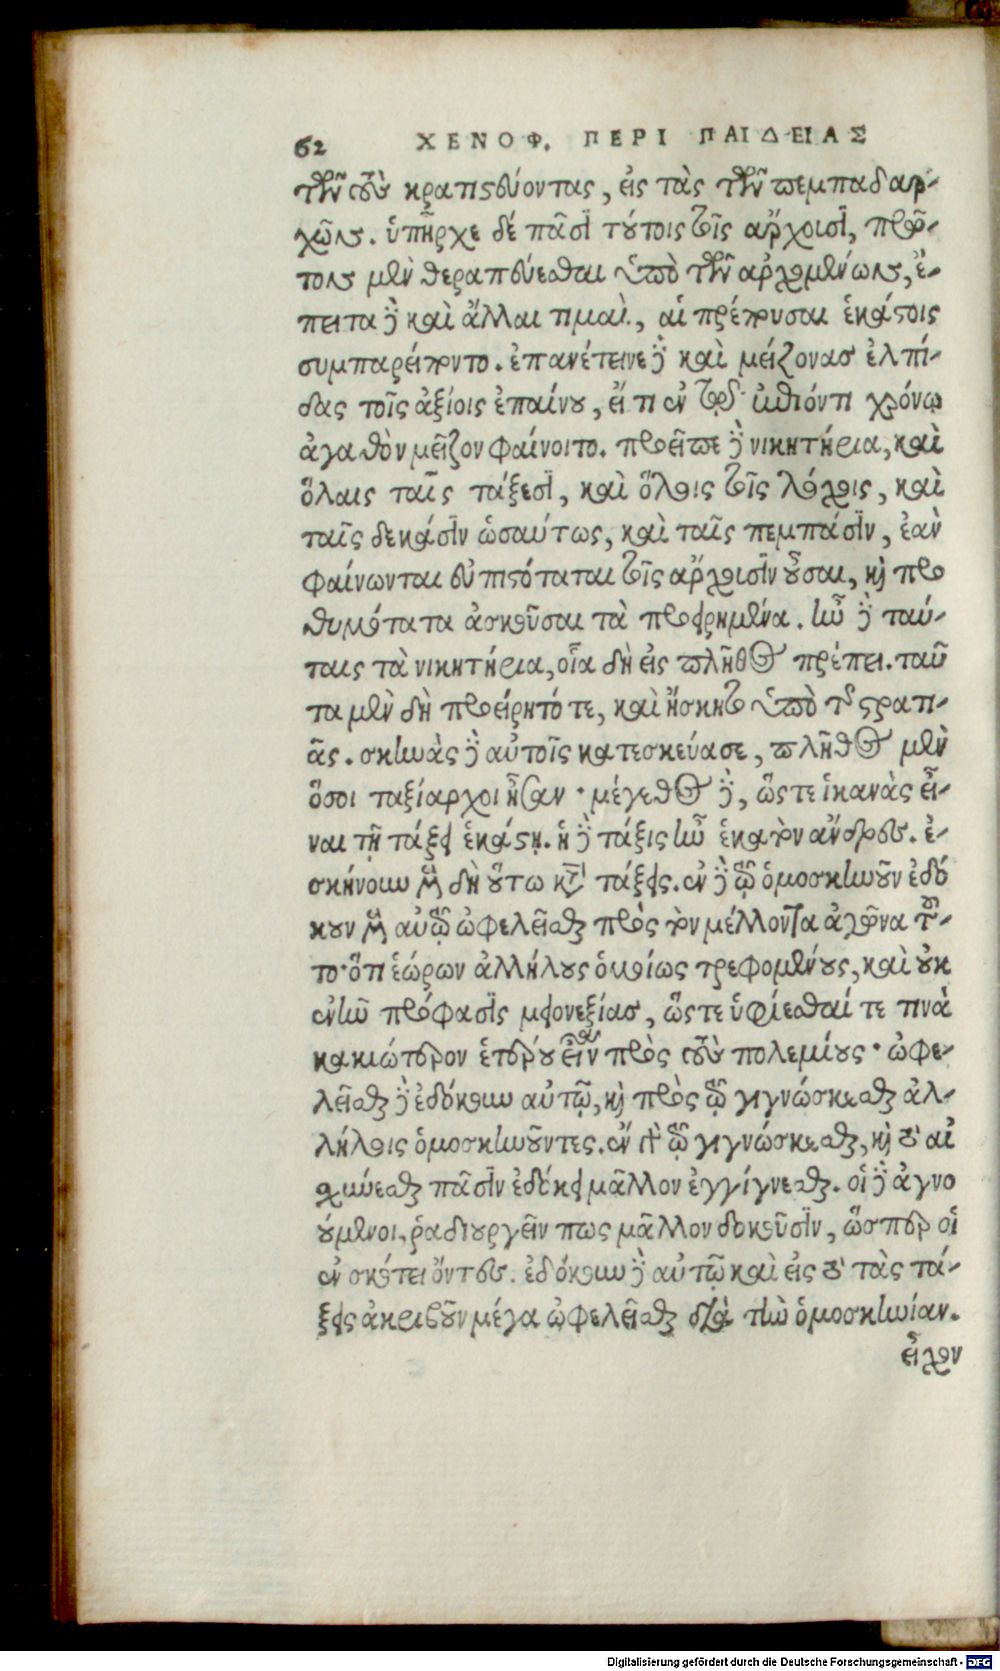 62 ΧΕΝΟΦ. ΠΕΡΙ ΠΑΙΔΕΙΑΣ
τῶν τοὺς κρατιστεύοντας, εἰς τὰς τῶν πεμπαδαρ-
χῶν. ὑπῆρχε δέ πᾶσι τούτοις τοῖς ἄρχουσι, πρῶ-
τον μὲν θεραπεύεσθαι ὑπὸ τῶν ἀρχομένων, ἔ-
πειτα δὲ καὶ ἄλλαι τιμαὶ, αἱ πρέπουσαι ἑκάστοις
συμπαρείποντο. ἐπανέτεινε δὲ καὶ μείζονας ἐλπί-
δας τοῖς ἀξίοις ἐπαίνου, εἴ τι ἐν τῷ ἐπιόντι χρόνῳ
ἀγαθὸν μεῖζον φαίνοιτο. προεῖπε δὲ νικητήρια, καὶ
ὅλαις ταῖς τάξεσι, καὶ ὅλοις τοῖς λόχοις, καὶ
ταῖς δεκάσιν ὡσαύτως, καὶ ταῖς πεμπάσιν, ἐὰν
φαίνωνται εὐπιστόταται τοῖς ἄρχουσιν οὖσαι, καὶ προ
θυμότατα ἀσκοῦσαι τὰ προειρημένα. ἦν δὲ ταύ-
ταις τὰ νικητήρια, οἷα δὴ εἰς πλῆθος πρέπει. ταῦ
τα μὲν δὴ προείρητό τε, καὶ ἤσκητο ὑπὸ τῆς στρατι-
ᾶς. σκηνὰς δὲ αὐτοῖς κατεσκεύασε, πλῆθος μὲν
ὅσοι ταξίαρχοι ἦσαν· μέγεθος δὲ, ὥςτε ἱκανὰς εἶ-
ναι τῇ τάξει ἑκάστῃ. ἡ δὲ τάξις ἦν ἑκατὸν ἄνδρες. ἐ-
σκήνουν μὲν δὴ οὕτω κατὰ τάξεις. ἐν δὲ τῷ ὁμοσκηνοῦν ἐδό
κουν μὲν αὐτῷ ὠφελεῖσθαι πρὸς τὸν μέλλοντα ἀγῶνα τοῦ-
το· ὅτι ἑώρων ἀλλήλους ὁμοίως τρεφομένους, καὶ οὐκ
ἐνῆν πρόφασις μειονεξίας, ὥςτε ὑφίεσθαί τε τινὰ
κακιώτερον ἑτέρου εἶναι πρὸς τοὺς πολεμίους· ὠφε-
λεῖσθαι δὲ ἐδόκουν αὐτῷ, καὶ πρὸς τῷ γιγνώσκεσθαι ἀλ-
λήλοις ὁμοσκηνοῦντες. ἐν γὰρ τῷ γιγνώσκεσθαι, καὶ τὸ αἰ
σχύνεσθαι πᾶσιν ἐδόκει μᾶλλον ἐγγίγνεσθαι. οἱ δὲ ἀγνο
ούμενοι, ῥᾳδιουργεῖν πως μᾶλλον δοκοῦσιν, ὥσπερ οἱ
ἐν σκότει ὄντες. ἐδόκουν δὲ αὐτῷ καὶ εἰς τὸ τὰς τά-
ξεις ἀκριβοῦν μέγα ὠφελεῖσθαι διὰ τὴν ὁμοσκηνίαν.
εἶχον
Digitalisierung gefördert durch die Deutsche Forschungsgemeinschaft - DFG